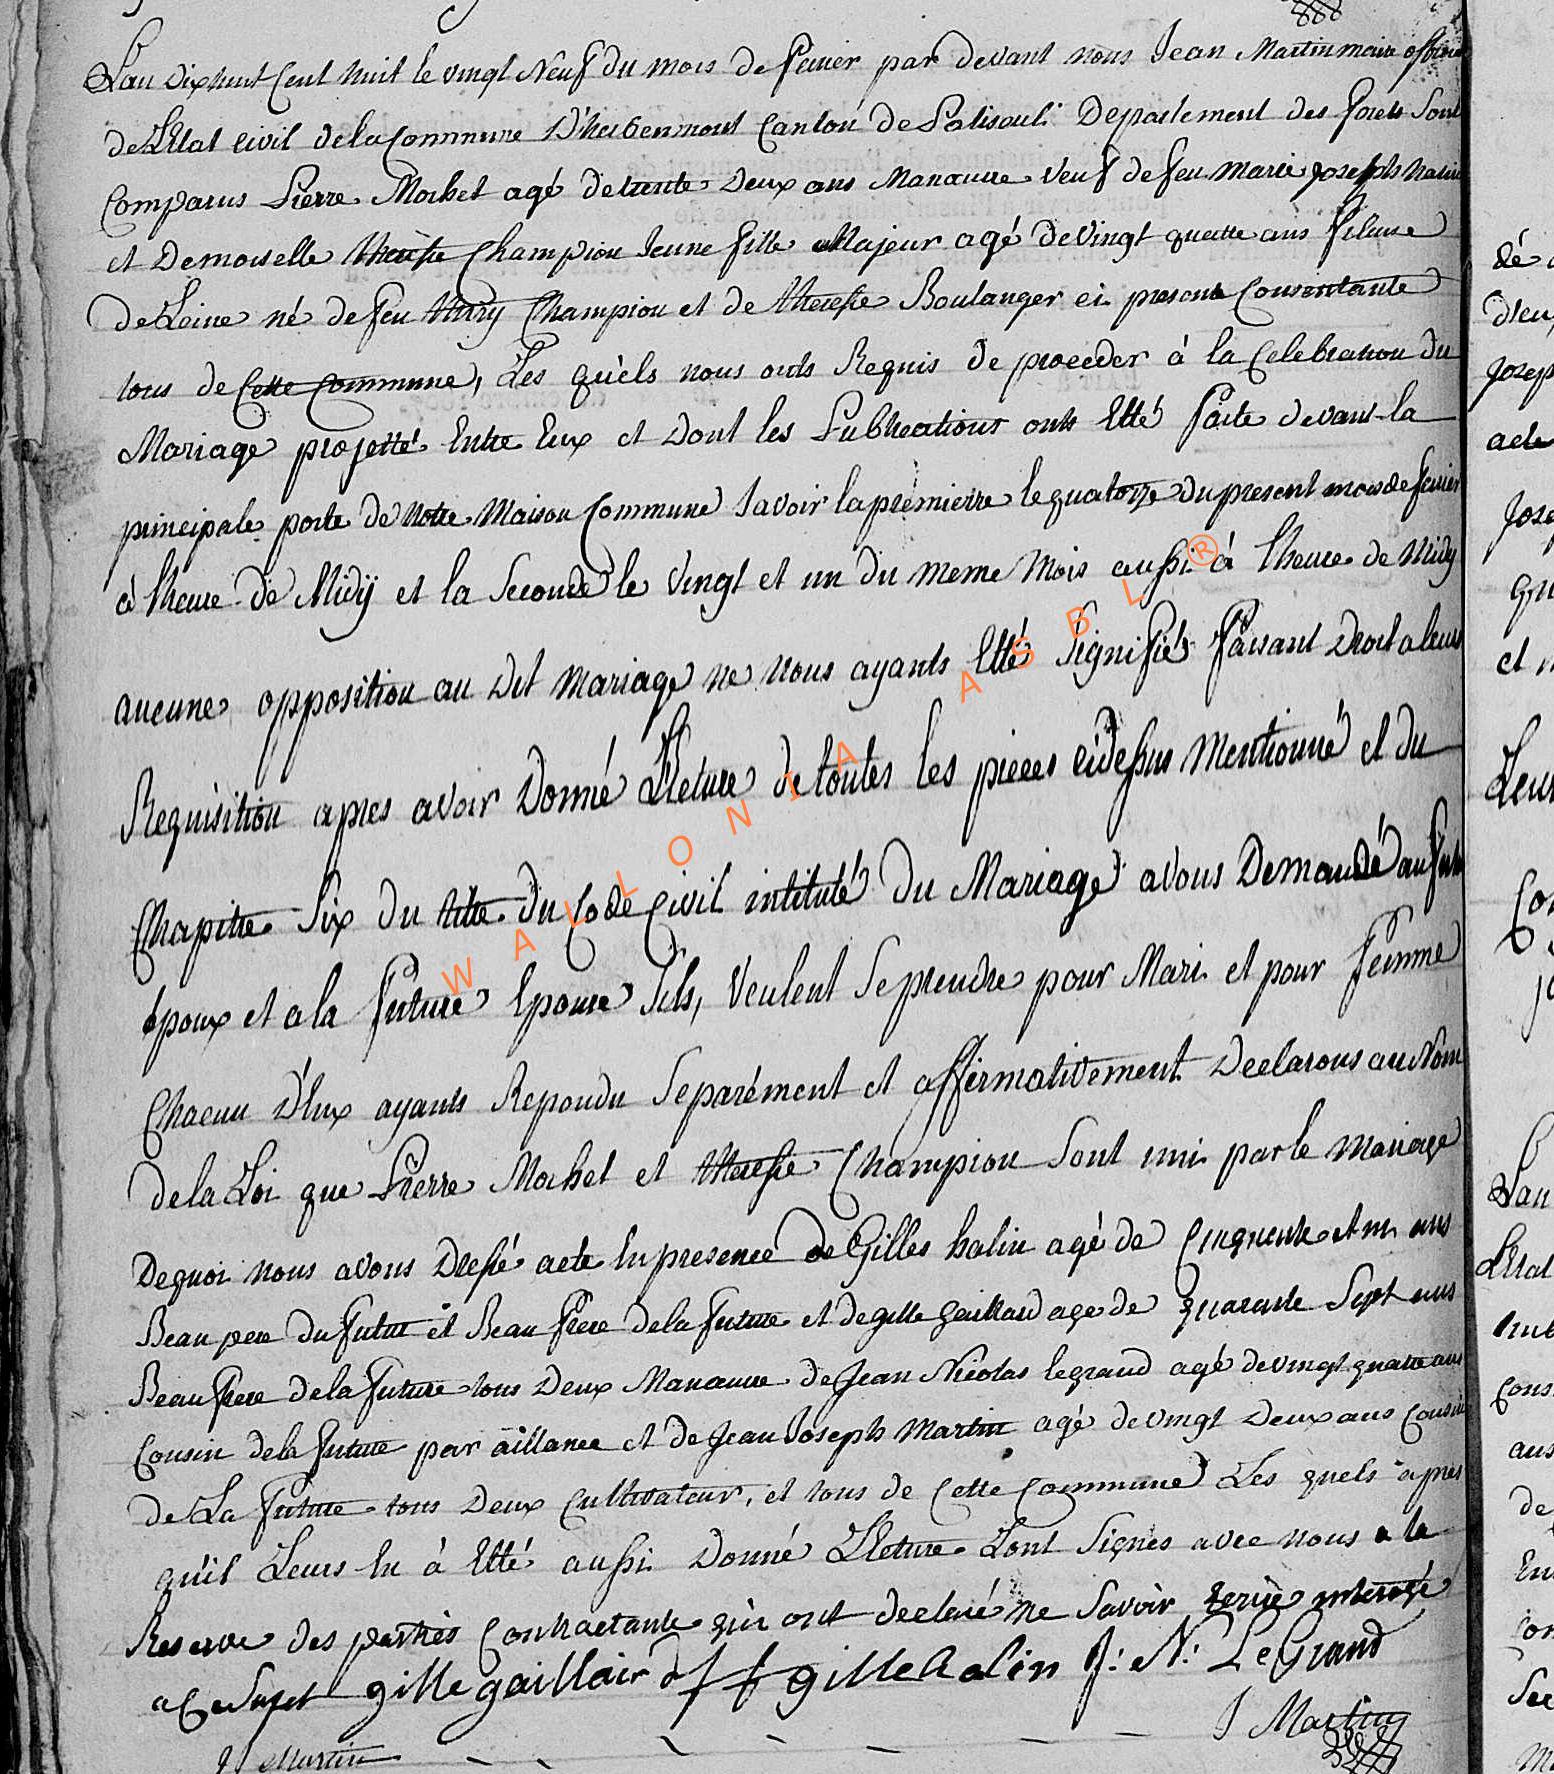 L'an dix huit Cent huit le vingt Neuf du mois de fevrier par devant nous Jean Martin maire officier
de L'Etat civil de la Commune D'herbenmont Canton de Palisaul Departement des forets Sont
Comparus Pierre Mochet agé de trente Deux ans Manœuvre veuf de feu Marie Joseph
et Demoiselle therese Champion Jeune fille Majeur agé de vingt quatre ans fileuse
de Leine né de feu Champion et de therese Boulanger ci presente Consentante
tous de Cette Commune, Les quèls nous onts Requis de proceder à la Celebration du
Mariage projetté Entre Eux et Dont les Publications onts Etté faite devant la
principale porte de notre Maison Commune Savoir la premierre le quatorze du present mois de fevrier
à lheure de Midÿ et la Seconde le Vingt et un du meme Mois aussi à lheure de Midy
aucune opposition au Dit Mariage ne Nous ayants Etté Signifiés faisant Droit a leurs
Requisition apres avoir Donné Lecture de toutes les pieces cidessus Mentionné et du
Chapitre Six du titre du Code Civil intitulé du Mariage avons Demandé au futur
Epoux et a la future Epouse S'ils, Veulent Se prendre pour Mari et pour femme
Chacun D'Eux ayants Repondu Separément et affirmativement Declarons au Nom
de la Loi que Pierre Mochet et therese Champion Sont uni par le Mariage
De quoi nous avons Dressé acte En presence de Gilles halin agé de Cinquente et un ans
Beau pere du futur et Beau frere de la future et de gille gaillard age de quarante Sept ans
Beau frere de la future tous Deux Manœuvre de Jean Nicolas legrand agé de vingt quatre ans
Cousin de la future par aillance et de Jean Joseph Martin agé de vingt Deux ans Cousin
de La future tous Deux Cultivateur, et tous de Cette Commune Les quels apres
qu'il Leurs En à Etté aussi Donné Lecture Lont Signes avec nous a la
Reserve des parties Contractante qui ont declaré ne Savoir Ecrire interogé
a Ce Sujet gille gaillaird gille halin J: N: LeGrand
J Martin
J Martin
WALLONIA ASBL ®